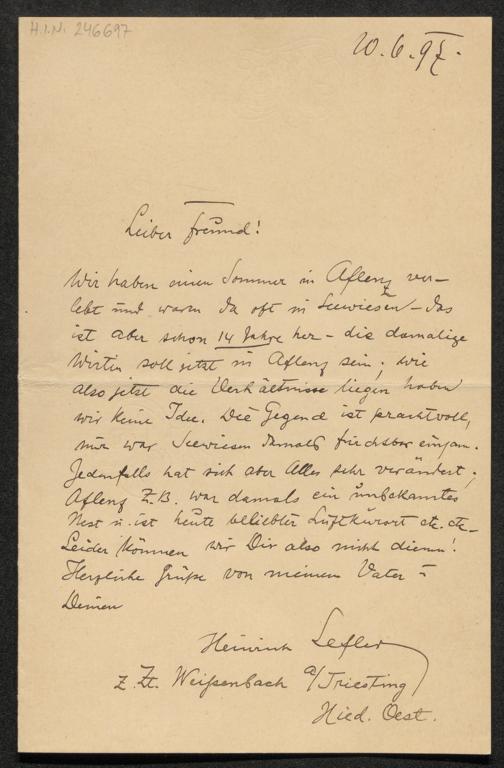 H.I.N. 246697
20.6.97.
Lieber Freund!
Wir haben einen Sommer in Aflenz ver-
lebt und waren da oft in Seewiesen – das
ist aber schon 14 Jahre her – die damalige
Wirtin soll jetzt in Aflenz sein; wie
also jetzt die Verhältnisse liegen haben
wir keine Idee. Die Gegend ist prachtvoll,
nur war Seewiesen damals furchtbar einsam.
Jedenfalls hat sich aber Alles sehr verändert;
Aflenz Z.B. war damals ein unbekanntes
Nest u. ist heute beliebter Luftkurort etc. etc.
Leider können wir Dir also nicht dienen!
Herzliche Grüße von meinem Vater u
Deinem
Heinrich Lefler
z. Zt. Weißenbach a/Triesting
Nied. Oest.